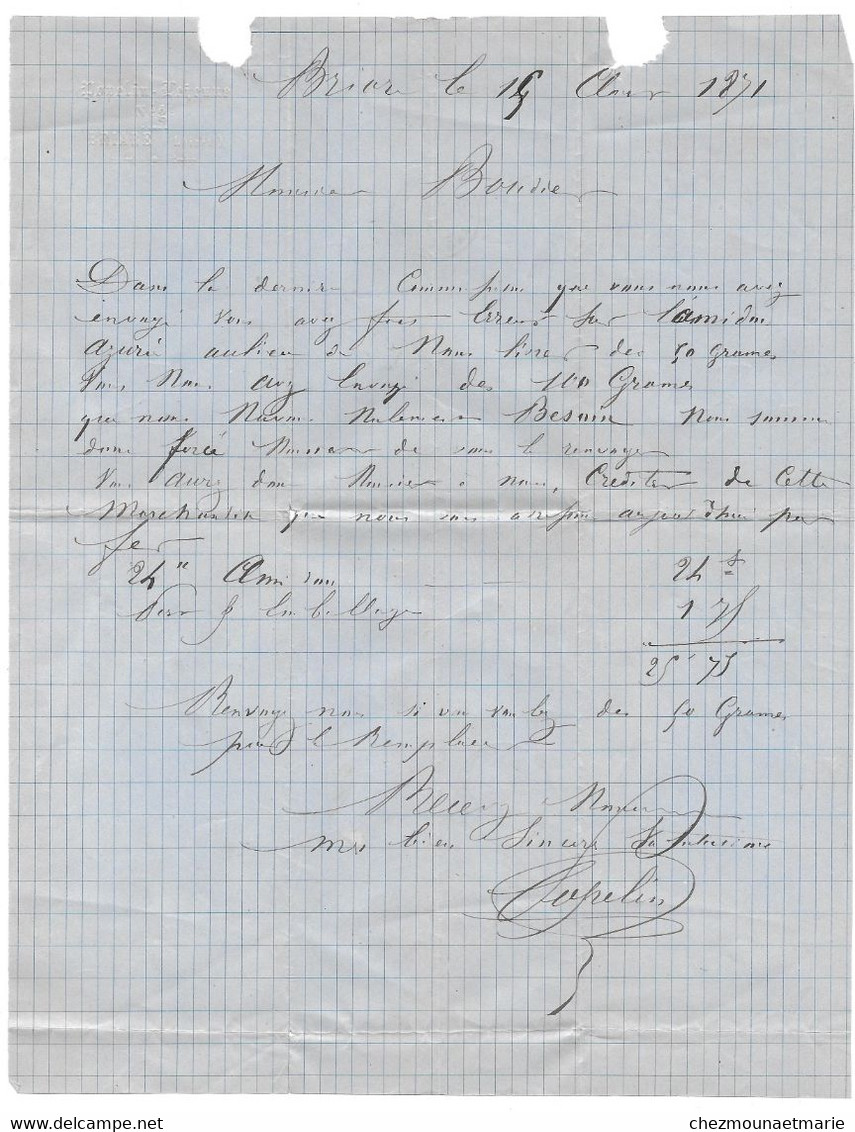 Briare le 15 Aout 1871
Monsieur Boudier
Dans la derniere Commission que vous nous avez
envoyé Vous avez fais Erreur sur l'amidon
azuré aulieu de Nous livrer des 50 Grames
Vous Nous avez Envoyé des 100 Grames
que nous Navons Nulement Besoin Nous sommes
donc forcé Monsieur de vous le renvoyer
Vous aurez donc Monsieur a nous Crediter de Cette
Marchandise que nous vous adressons aujourd'hui par
fer
24 " Amidon 24 f
Port & Emballage 1 75
25 75
Renvoyez nous si vous voulez des 50 Grames
pour le Remplacer
Recevez Monsieur
mes bien Sincere Salutations
chezmounaetmarie